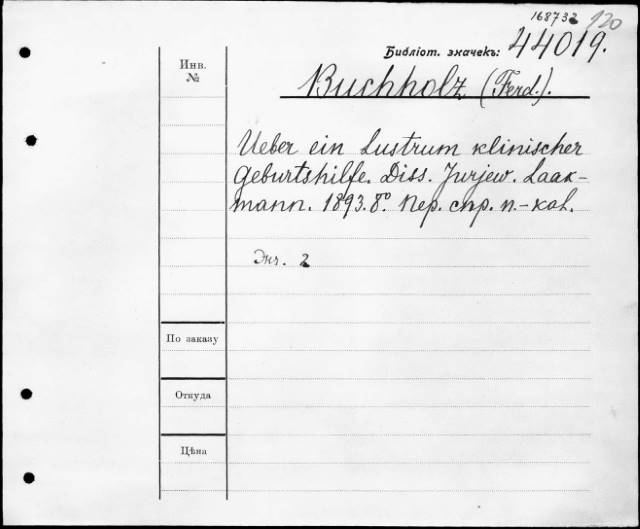 168732 120
Библіот. значекъ: 44019.
Инв.
№
Buchholz (Ferd.).
Ueber ein Lustrum klinischer
Geburtshilfe. Diss. Jurjew. Laak-
mann. 1893. 8°. Пер. спр. п.-
Экз. 2
По заказу
Откуда
Цѣна